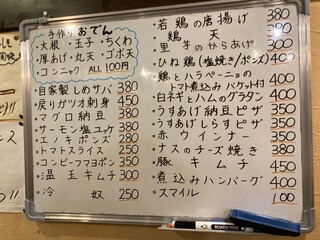 手作り おでん
・大根・玉子・ちくわ
・厚あげ・丸天・ゴボ天
・コンニャク ALL 100円
・自家製しめサバ 380
・戻りガツオ刺身 450
・マグロ納豆 380
・サーモン塩ユッケ 380
・エノキポンズ 280
・トマトスライス 250
・コンビーフマヨポン 350
・温玉キムチ 300
・冷奴 250
・若鶏の唐揚げ 380
・鶏天 380
・里芋のからあげ 300
・ひね鶏(塩焼き/ポンズ) 400
・鶏とハラペーニョの
トマト煮込み バケット付 400
・白ネギとハムのグラタン 400
・うすあげ納豆ピザ 350
・うすあげしらすピザ 350
・赤ウインナー 350
・ナスのチーズ焼き 380
・豚キムチ 450
・煮込みハンバーグ 400
・スマイル 100
BOARD